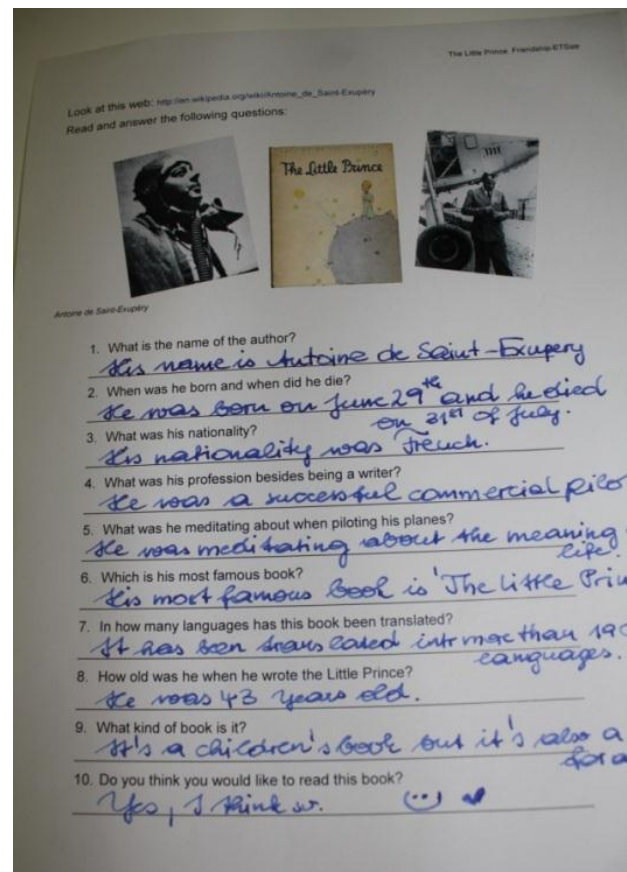 The Little Prince. Friendship-ETSize
Look at this web: http://en.wikipedia.org/wiki/Antoine_de_Saint-Exupéry
Read and answer the following questions:
The Little Prince
Antoine de Saint-Exupéry
1. What is the name of the author?
His name is Antoine de Saint-Exupery
2. When was he born and when did he die?
He was born on June 29th and he died
on 31st of July.
3. What was his nationality?
His nationality was French.
4. What was his profession besides being a writer?
He was a successful commercial pilo
5. What was he meditating about when piloting his planes?
He was meditating about the meaning
life.
6. Which is his most famous book?
His most famous book is 'The Little Prin
7. In how many languages has this book been translated?
It has been translated into more than 190
languages.
8. How old was he when he wrote the Little Prince?
He was 43 years old.
9. What kind of book is it?
It's a children's book but it's also a
for a
10. Do you think you would like to read this book?
Yes, I think so.